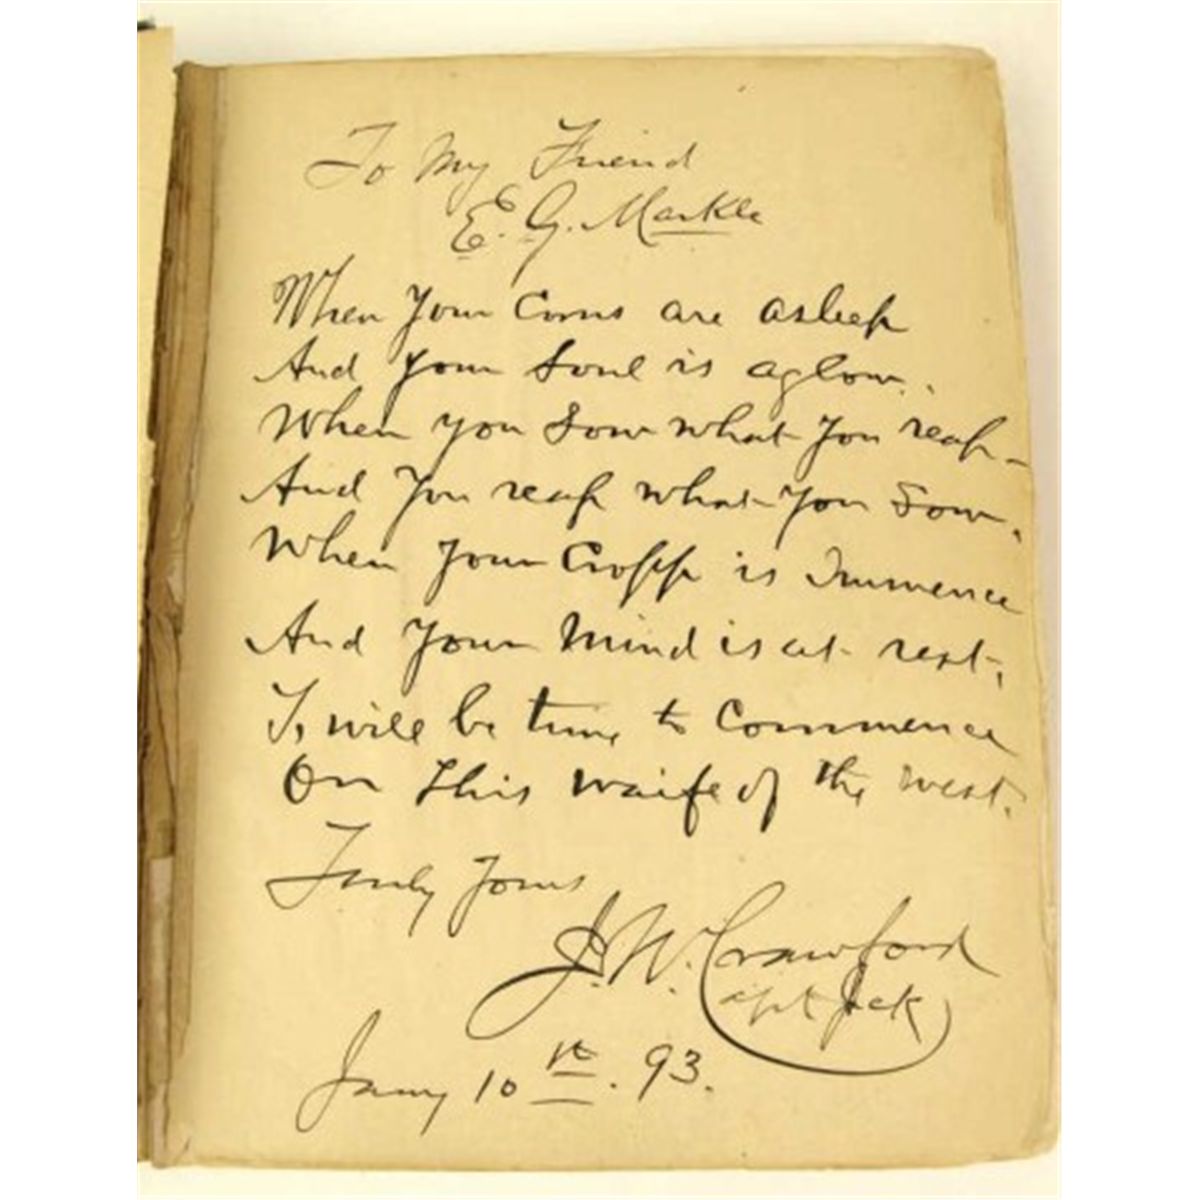 To My Friend
E. G. Markle
When your Corns are asleep
And your Soul is aglow.
When you Sow what you reap -
And you reap what you Sow.
When your Cropp is Immence
And your Mind is at rest,
will be time to Commence
On this waife of the west.
Truly Yours
J. W. Crawford
Capt Jack
Jany 10th. 93.